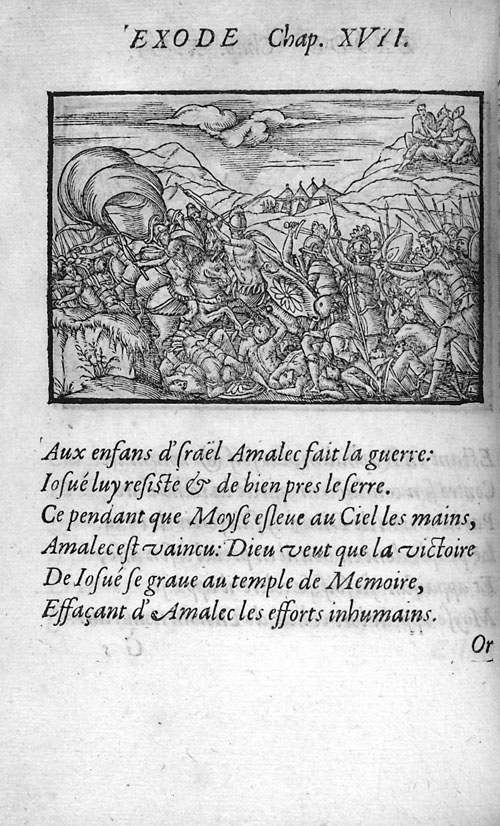 EXODE Chap. XVII.
Aux enfans d'Israël Amalec fait la guerre:
Iosué luy resiste & de bien pres le serre.
Ce pendant que Moyse esleue au Ciel les mains,
Amalec est vaincu: Dieu veut que la victoire
De Iosué se graue au temple de Memoire,
Effaçant d'Amalec les efforts inhumains.
Or